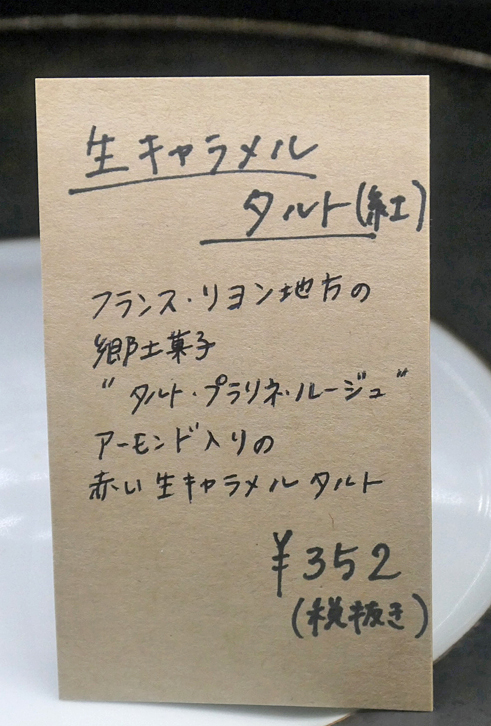 生キャラメル
タルト(紅)
フランス・リヨン地方の
郷土菓子
"タルト・プラリネ・ルージュ"
アーモンド入りの
赤い生キャラメルタルト
¥352
(税抜き)